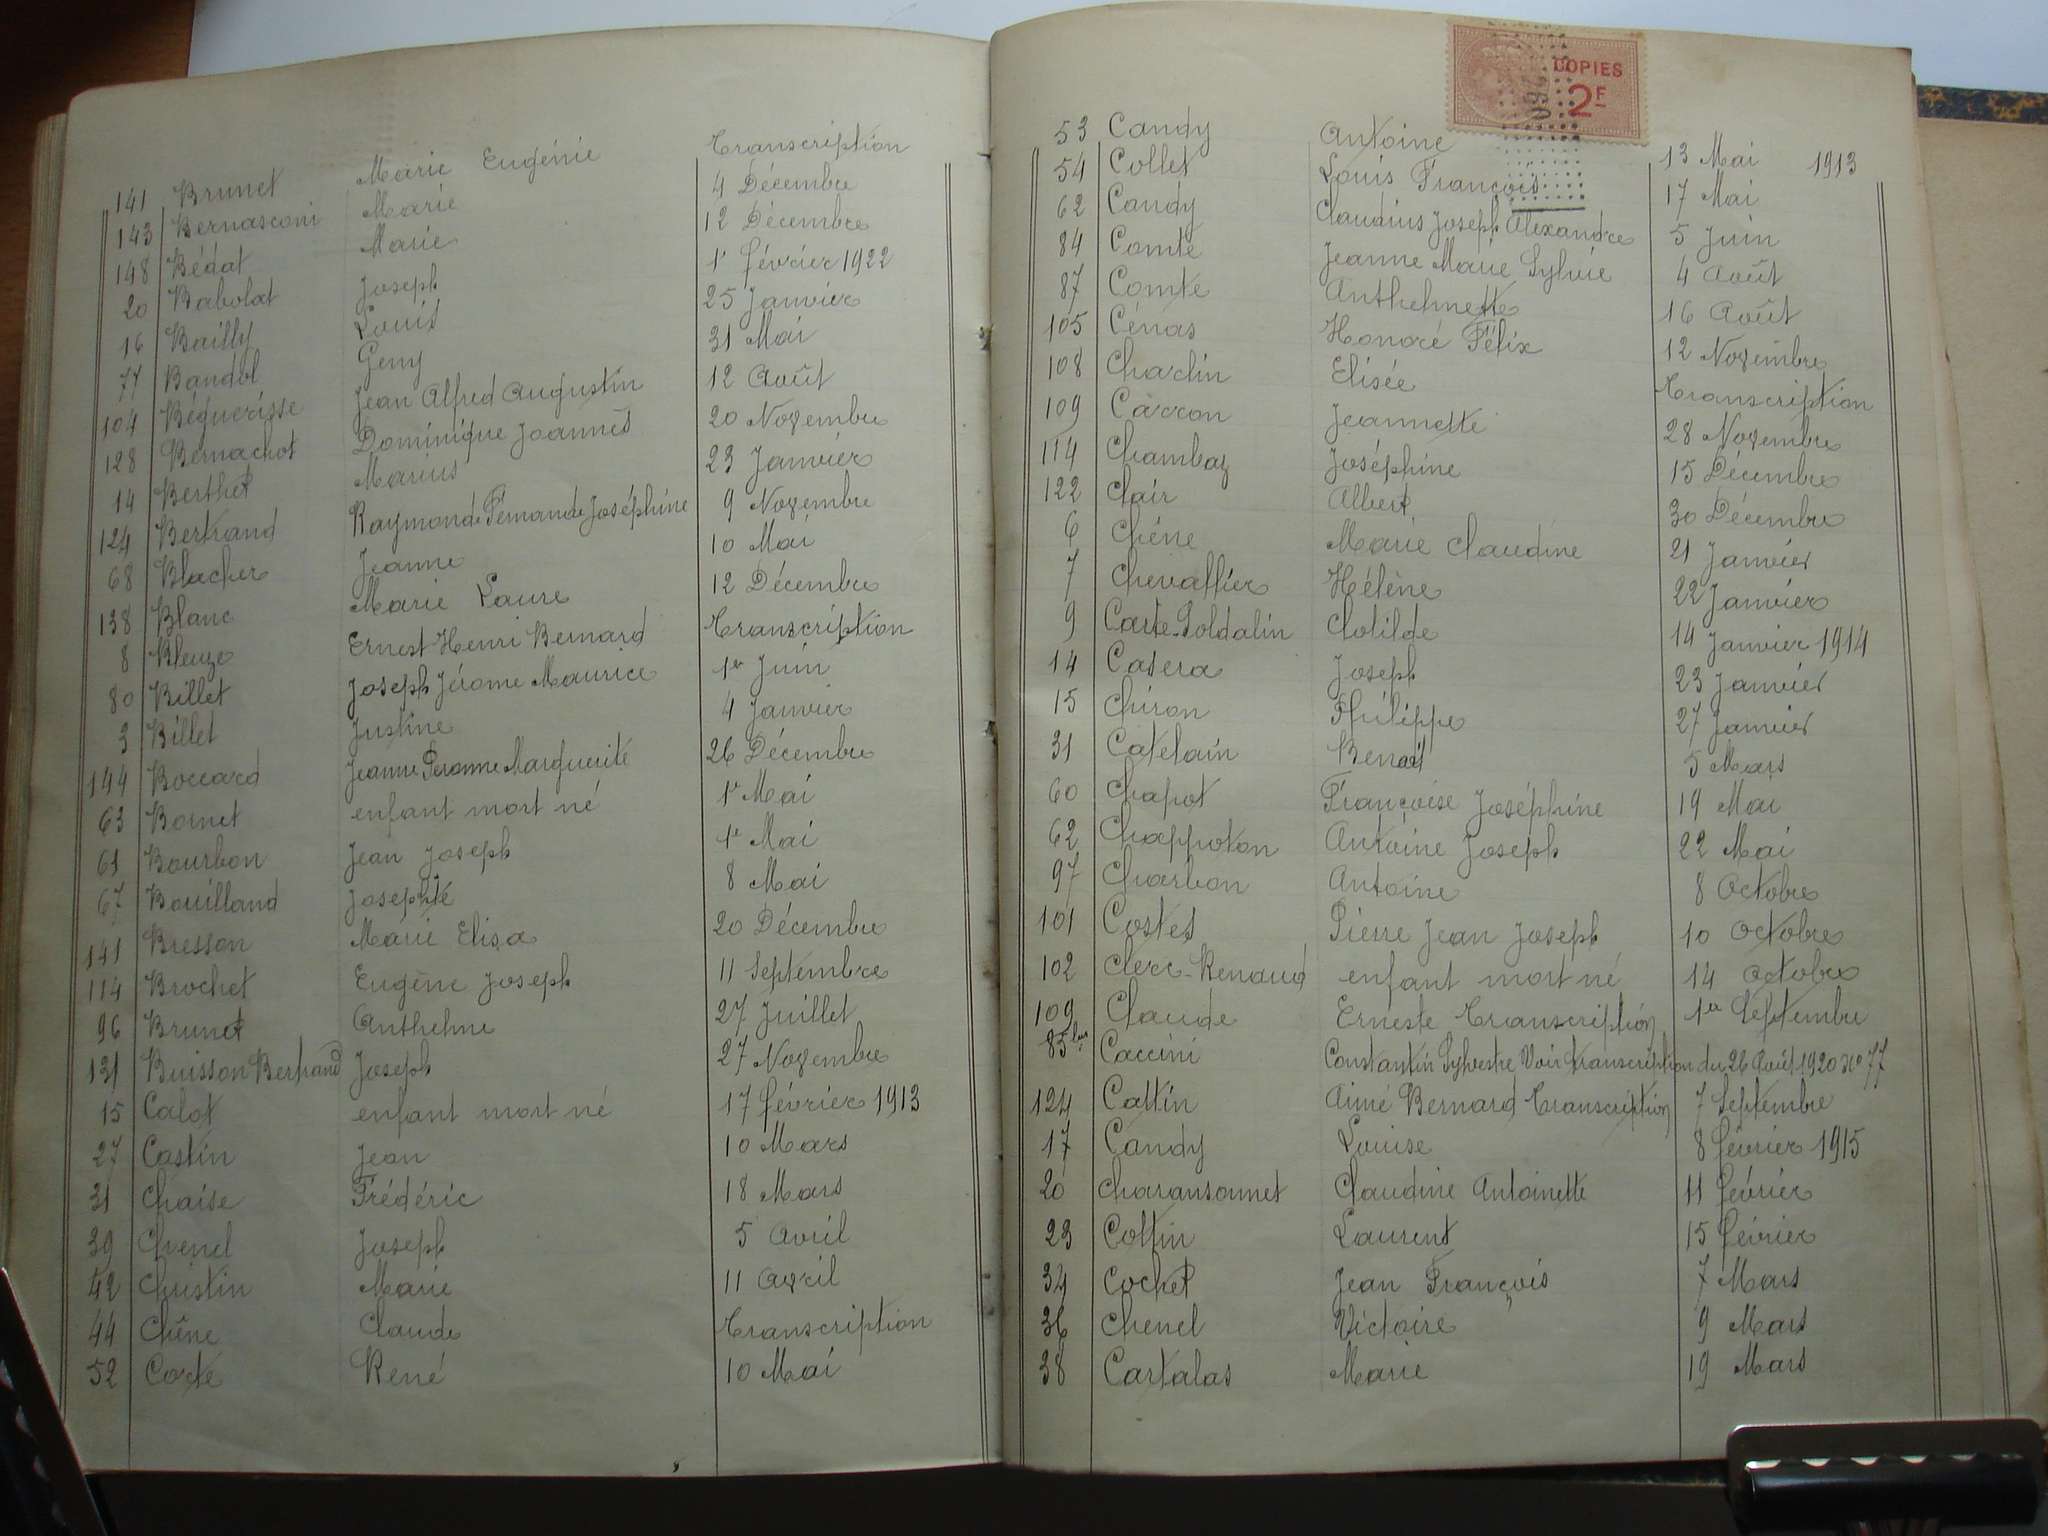 141 Brunet Marie Eugénie Transcription
143 Bernasconi Marie 4 Décembre
148 Bédat Marie 12 Décembre
20 Babolat Joseph 1r février 1922
16 Bailly Louis 25 Janvier
77 Bandol Geny 31 Mai
104 Béguerisse Jean Alfred Augustin 12 Août
128 Bernachot Dominique Joannès 20 Novembre
14 Berthet Marius 23 Janvier
124 Bertrand Raymonde Fernande Joséphine 9 Novembre
68 Blacher Jeanne 10 Mai
138 Blanc Marie Laure 12 Décembre
8 Bleuze Ernest Henri Bernard Transcription
80 Billet Joseph Jérome Maurice 1er Juin
3 Billet Justine 4 Janvier
144 Boccard Jeanne Peronne Marguerite 26 Décembre
63 Bornet enfant mort né 1r Mai
61 Bourbon Jean Joseph 1r Mai
67 Bouilland Josephte 8 Mai
141 Bresson Marie Elisa 20 Décembre
114 Brochet Eugène Joseph 11 Septembre
96 Brunet Anthelme 27 Juillet
131 Buisson Bertrand Joseph 27 Novembre
15 Calot enfant mort né 17 février 1913
27 Castin Jean 10 Mars
31 Chaise Frédéric 18 Mars
39 Chenel Joseph 5 Avril
42 Christin Marie 11 Avril
44 Chêne Claude Transcription
52 Corte René 10 Mai
COPIES
2F
53 Candy Antoine 13 Mai 1913
54 Collet Louis François 17 Mai
62 Candy Claudius Joseph Alexandre 5 Juin
84 Comte Jeanne Marie Sylvie 4 Août
87 Comte Anthelmette 16 Août
105 Cénas Honoré Félix 12 Novembre
108 Charlin Elisée Transcription
109 Carron Jeannette 28 Novembre
114 Chambaz Joséphine 15 Décembre
122 Clair Albert 30 Décembre
6 Chêne Marie Claudine 21 Janvier
7 Chevallier Hélène 22 Janvier
9 Carte-Soldalin Clotilde 14 Janvier 1914
14 Casera Joseph 23 Janvier
15 Chiron Philippe 27 Janvier
31 Catelain Benoit 5 Mars
60 Chapot Françoise Joséphine 19 Mai
62 Chappoton Antoine Joseph 22 Mai
97 Charbon Antoine 8 Octobre
101 Costes Pierre Jean Joseph 10 Octobre
102 Clerc-Renaud enfant mort né 14 Octobre
109 Claude Erneste Transcription 1er Septembre
85bis Caccini Constantin Sylvestre Voir transcription du 26 Août 1920 No 77
124 Cattin Aimé Bernard Transcription 7 Septembre
17 Candy Louise 8 février 1915
20 Charansonnet Claudine Antoinette 11 février
23 Collin Laurent 15 février
34 Cochet Jean François 7 Mars
36 Chenel Victoire 9 Mars
38 Cartalas Marie 19 Mars